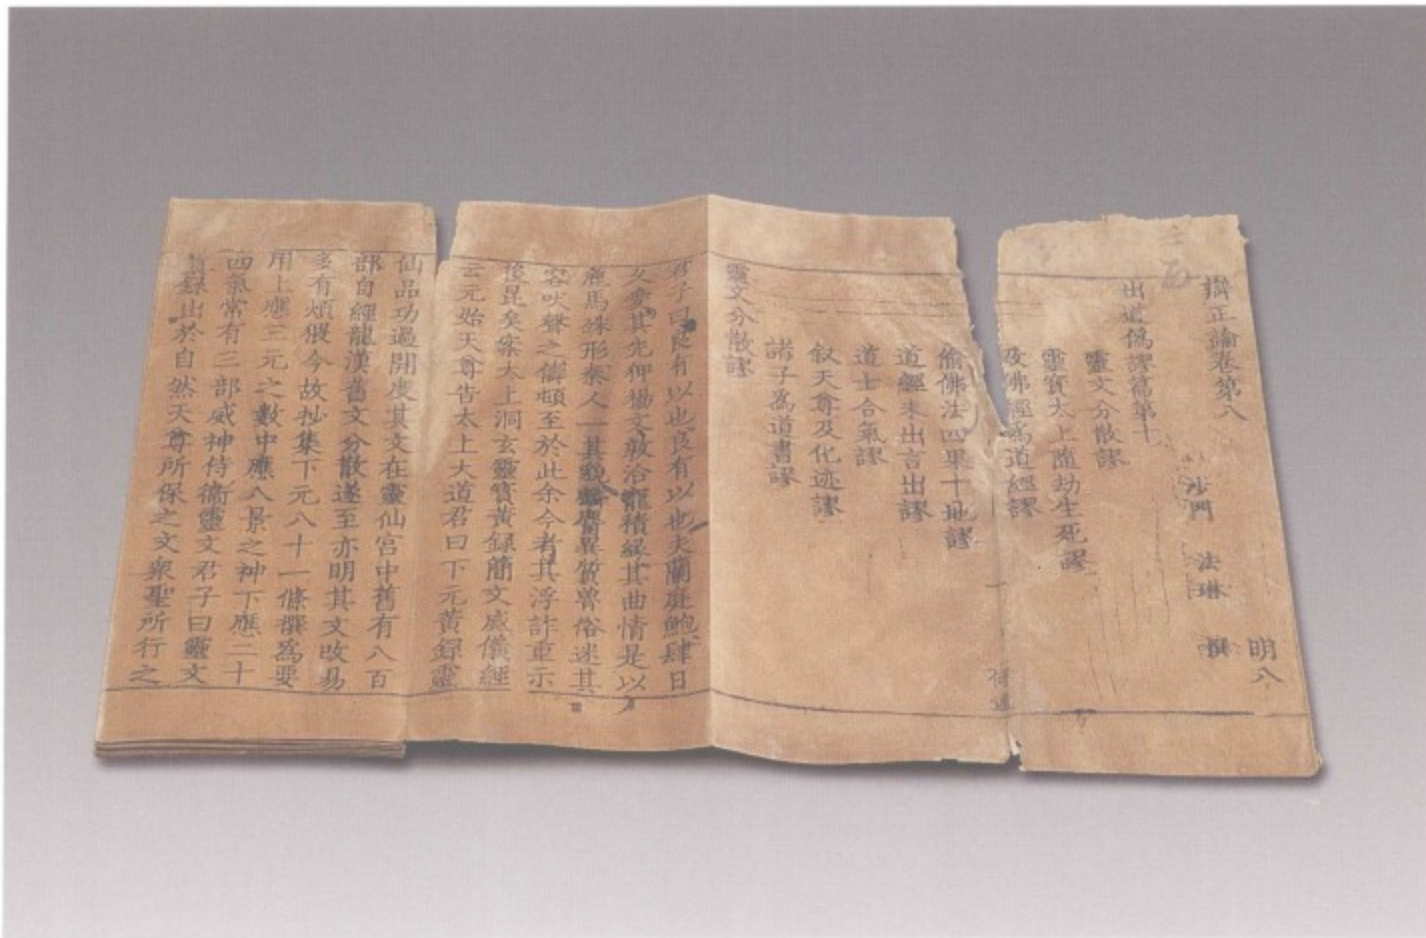 辯正論卷第八
明八
沙門 法琳 撰
出道僞謬篇第十
靈文分散謬
靈寶太上隨劫生死謬
改佛經爲道經謬
偷佛法四果十地謬
道經未出言出謬
道士合氣謬
叙天尊及化迹謬
諸子爲道書謬
靈文分散謬
君子曰良有以也良有以也夫蘭庭鮑肆日
又愛其先仰揚文敦洽龍積緣其曲情是以
鹿馬殊形秦人一其貌麟麏異質魯俗迷其
容吠聲之儔頓至於此余今者其浮詐重示
後昆矣案太上洞玄靈寶黃録簡文威儀經
云元始天尊告太上大道君曰下元黃録靈
仙品功過開度其文在靈仙宮中舊有八百
部自經龍漢舊文分散遂至亦明其文改易
多有煩猥今故抄集下元八十一條撰爲要
用上應三元之數中應八景之神下應二十
四氣常有三部威神侍衛靈文君子曰靈文
寶録出於自然天尊所保之文衆聖所行之